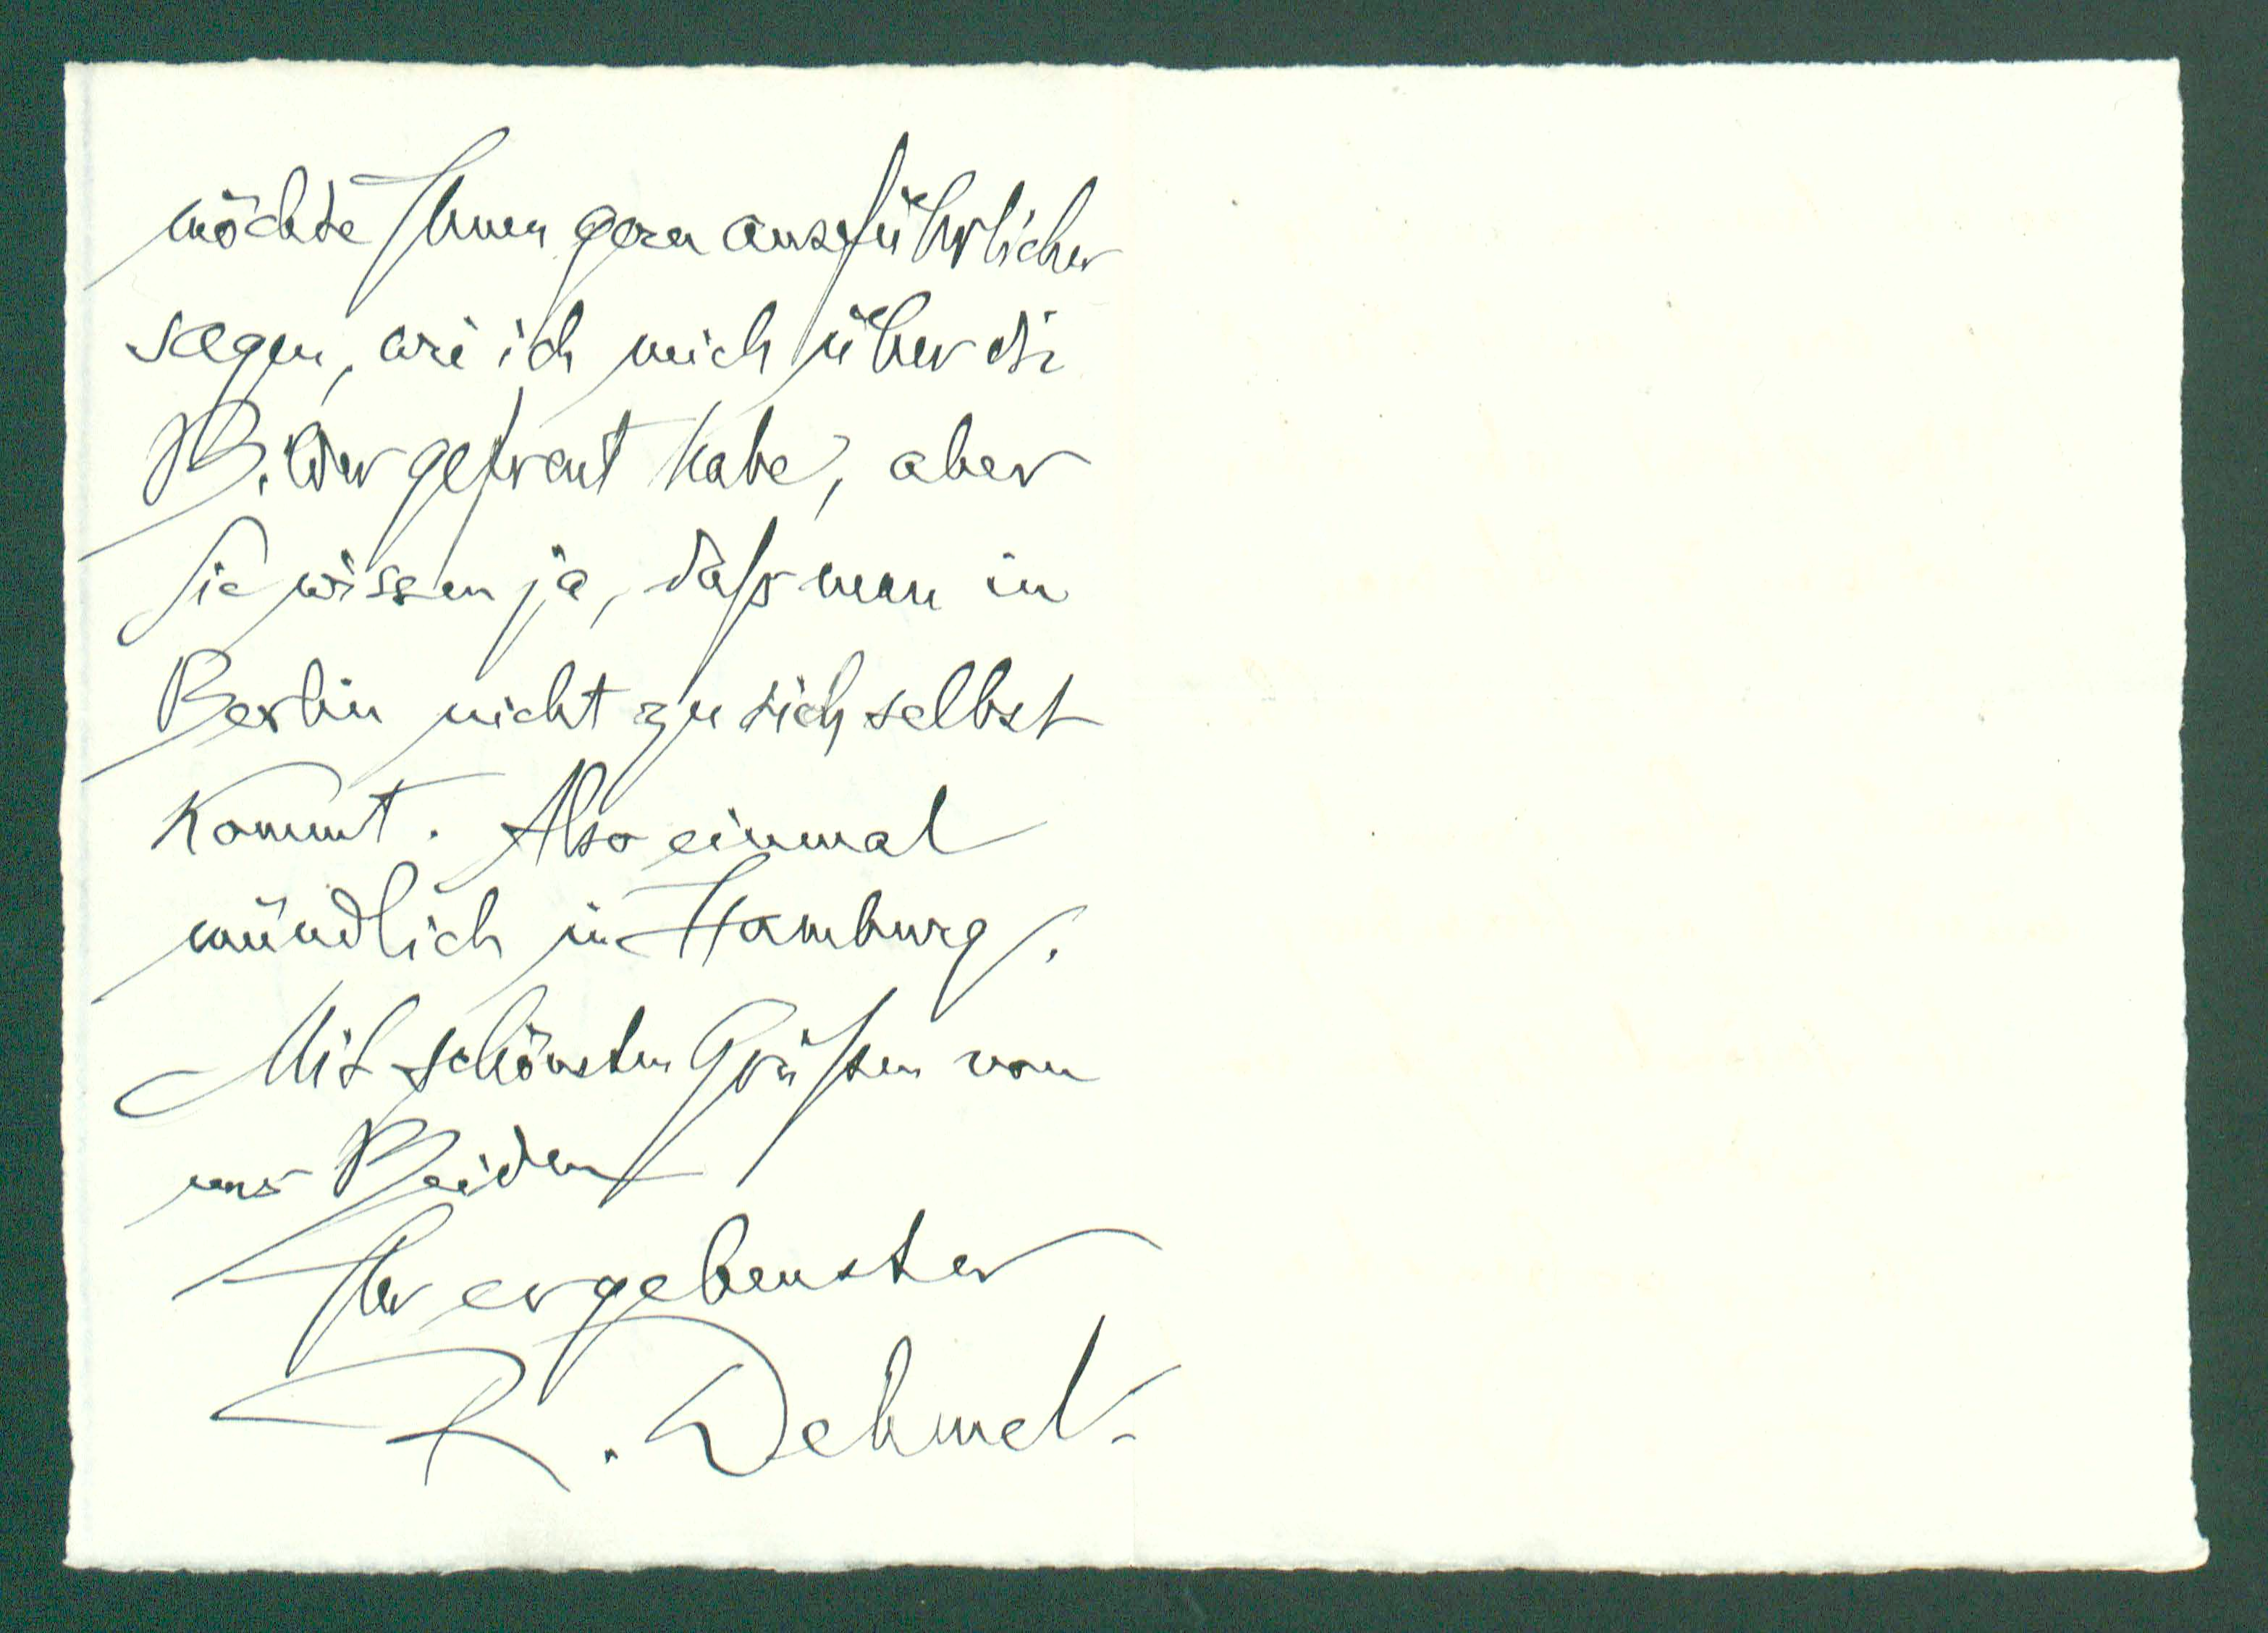 möchte Ihnen gern ausführlicher
sagen, wie ich mich über die
Bilder gefreut habe, aber
Sie wissen ja, daß man in
Berlin nicht zu sich selbst
kommt. Also einmal
mündlich in Hamburg.
Mit schönsten Grüßen von
uns Beiden
Ihr ergebenster
R. Dehmel.